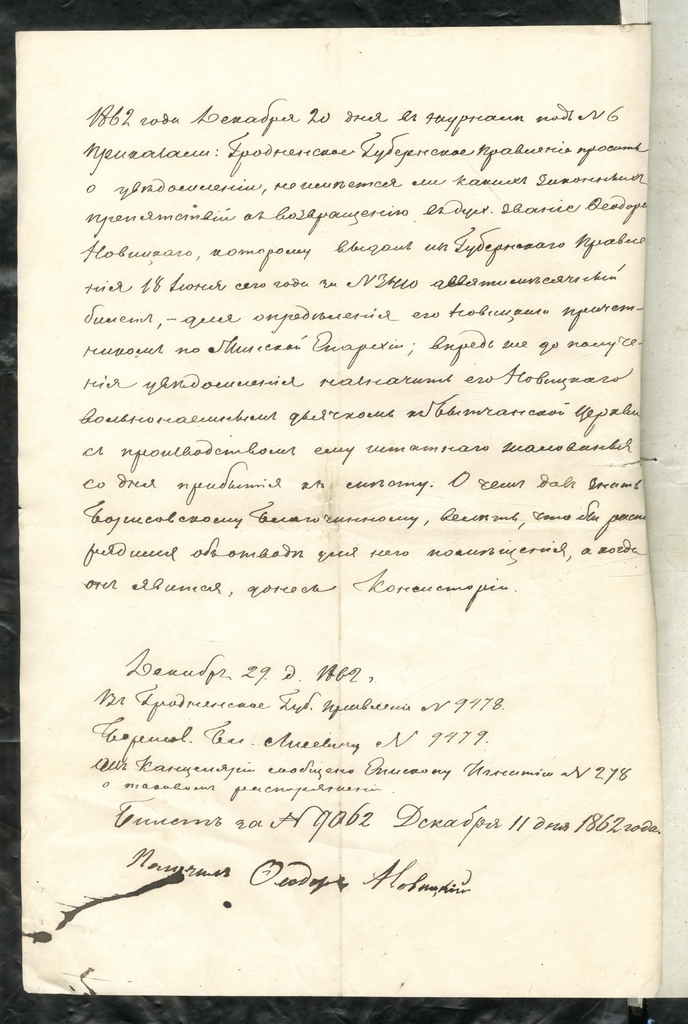 1862 года Декабря 20 дня въ журналѣ подъ № 6
Приказали: Гродненское Губернское Правленіе проситъ
о увѣдомленіи, не имѣется ли какихъ законныхъ
препятствій къ возвращенію въ дух. званіе Ѳеодора
Новицкаго, которому выданъ изъ Губернскаго Правле
нія 18 Іюня сего года за № девятимѣсячный
билетъ, – для опредѣленія его Новицкаго причет-
никомъ по Минской Епархіи; впредь же до получе-
нія увѣдомленія назначить его Новицкаго
вольнонаемнымъ дьячкомъ къ Бытчанской Церкви
съ производствомъ ему штатнаго жалованья
со дня прибытія къ мѣсту. О чемъ давъ знать
Борисовскому Благочинному, велѣть, что бы распо
рядился объ отводѣ для него помѣщенія, а когда
онъ явится, донесъ Консисторіи.
Декабря 29 д. 1862 г.
Въ Гродненское Губ. Правленіе № 9478.
Борисов. Бл. Лисевичу № 9479.
Изъ Канцеляріи сообщено Епископу Игнатію № 278
о таковомъ распоряженіи
Билетъ за № 9062 Декабря 11 дня 1862 года.
Получилъ Ѳеодоръ Новицкій